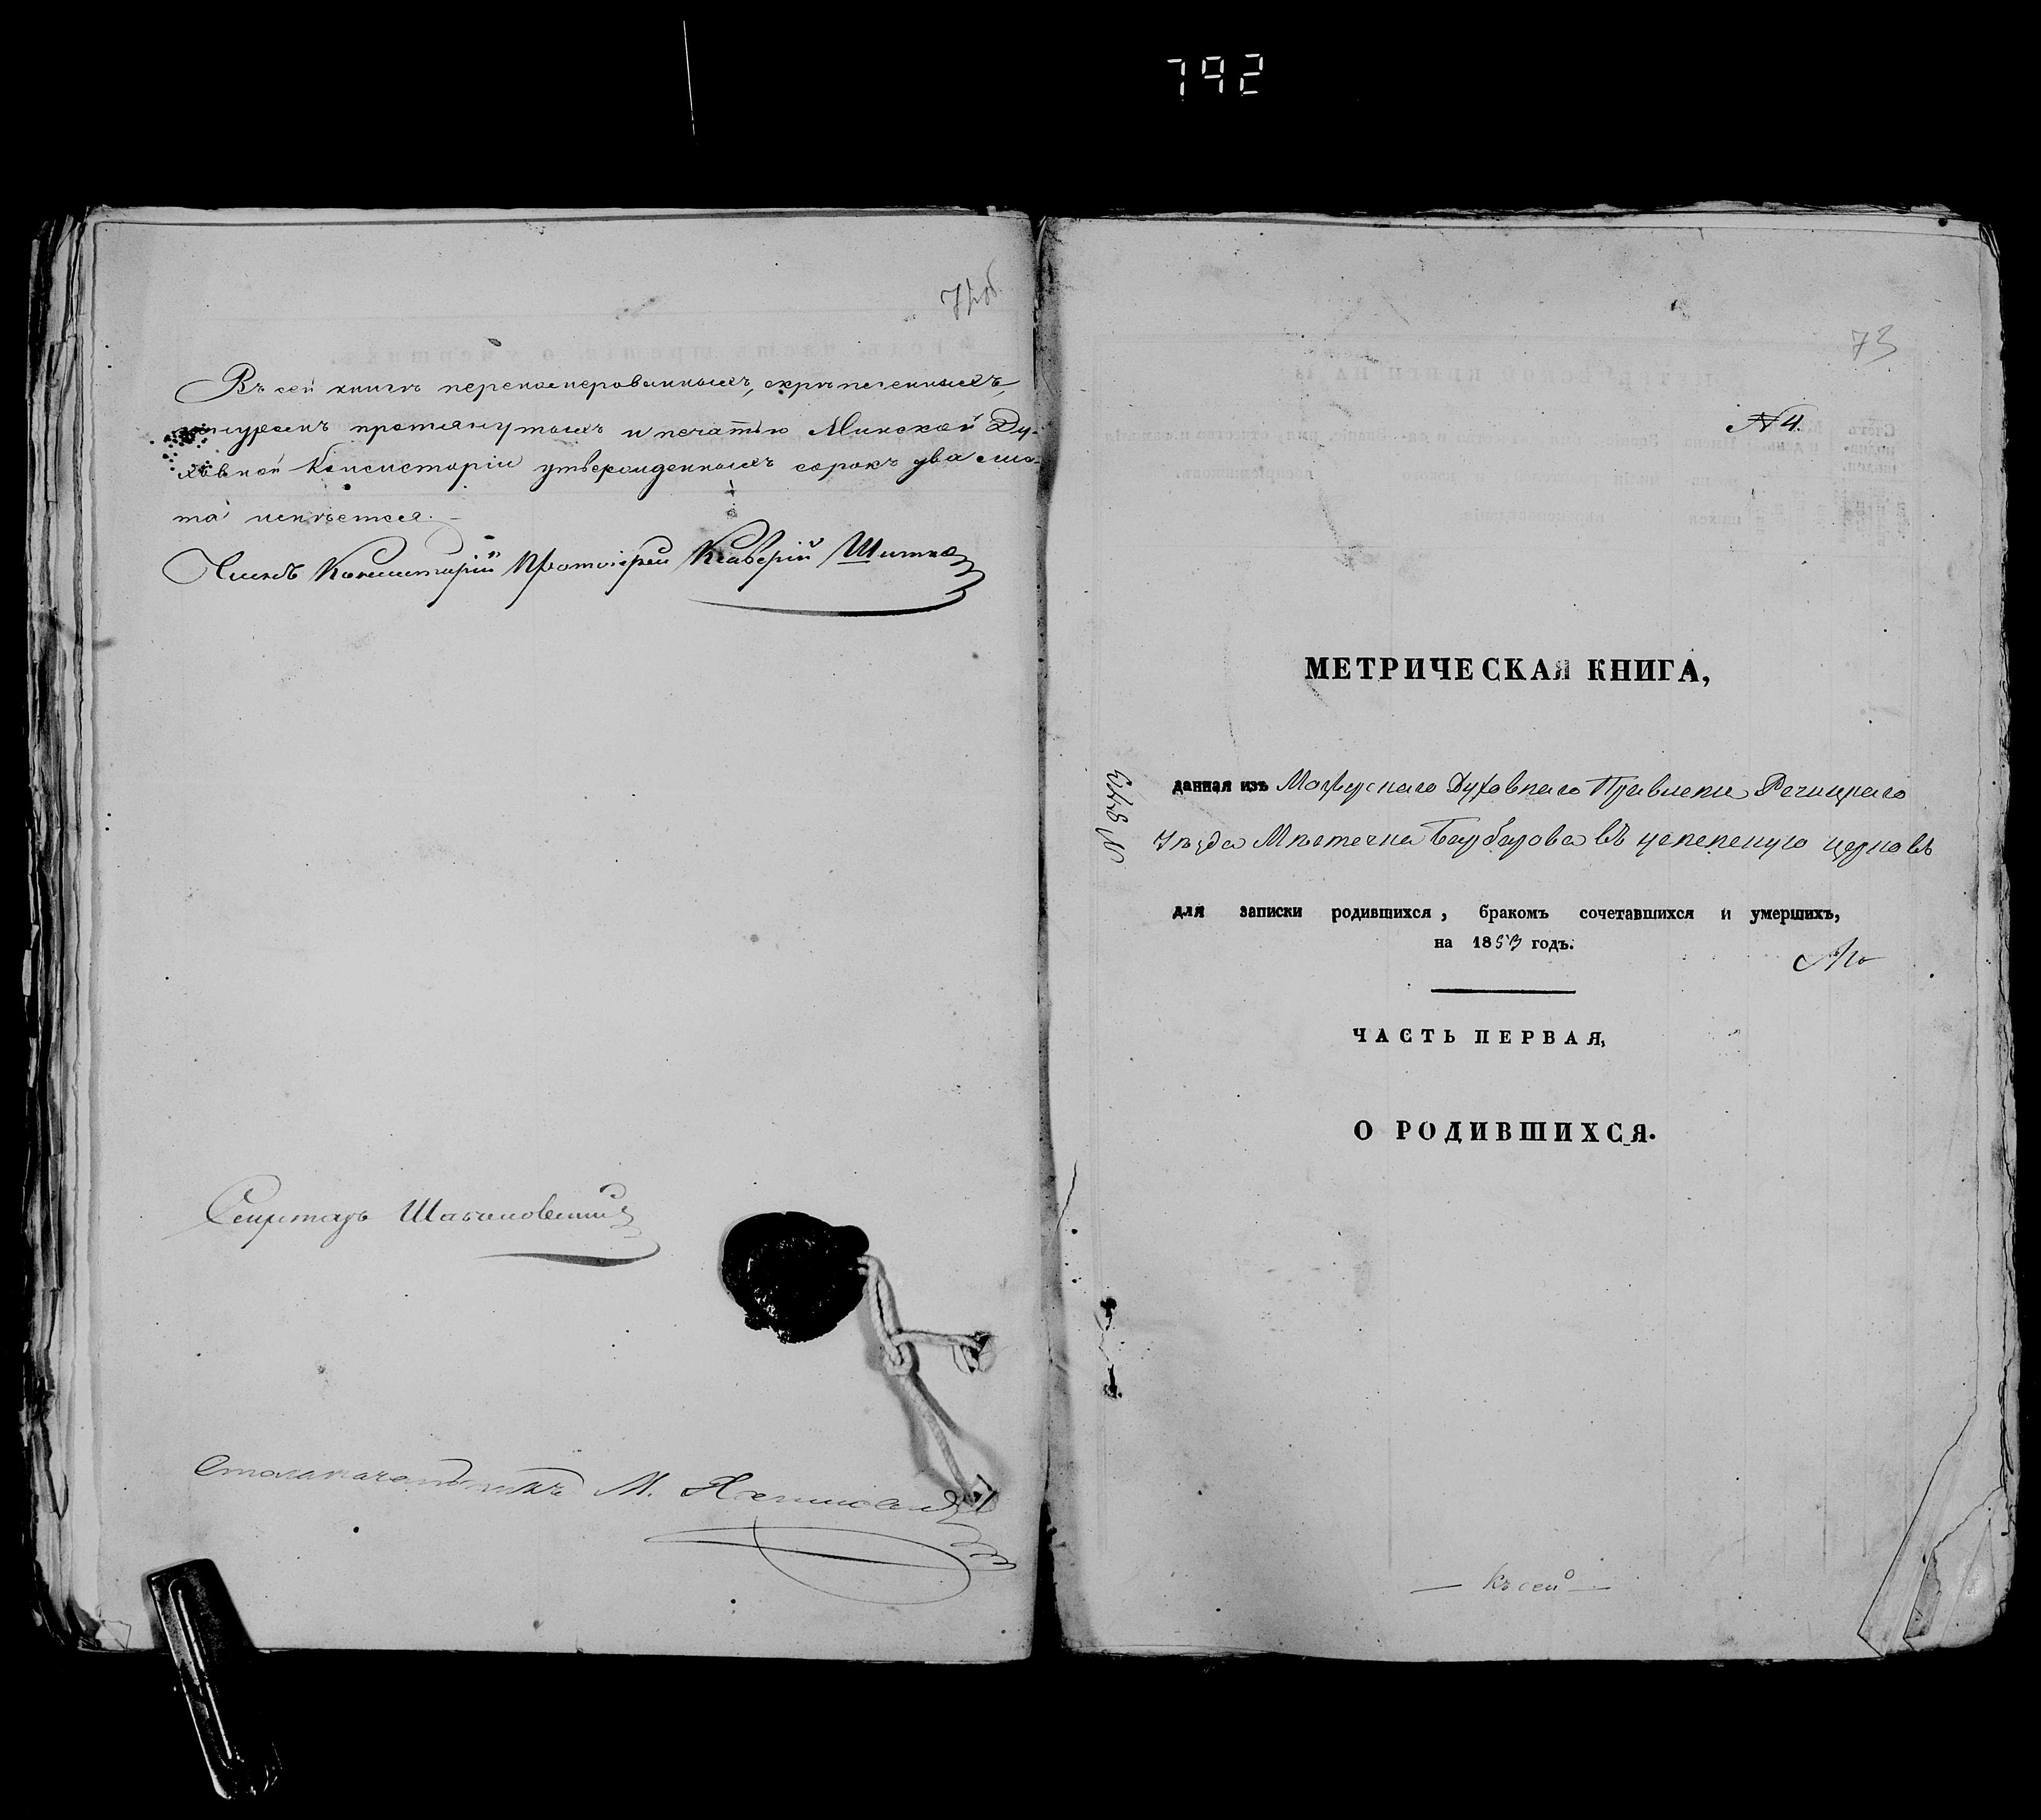 792
Въ сей книгѣ перенумерованныхъ, скрѣпленныхъ,
шнуромъ протянутыхъ и печатью Минской Ду-
ховной Консисторіи утвержденныхъ сорокъ два лис-
та имѣется.
Членъ Консисторіи Протоіерей Ксаверій
Секретарь
Столоначальникъ М.
73
№ 4.
МЕТРИЧЕСКАЯ КНИГА,
данная изъ Мозырскаго Духовнаго Правленія Речицкаго
Уѣзда Мѣстечка Барбарова въ церковь
для записки родившихся, бракомъ сочетавшихся и умершихъ,
на 1853 годъ.
ЧАСТЬ ПЕРВАЯ,
О РОДИВШИХСЯ.
— Къ сей —